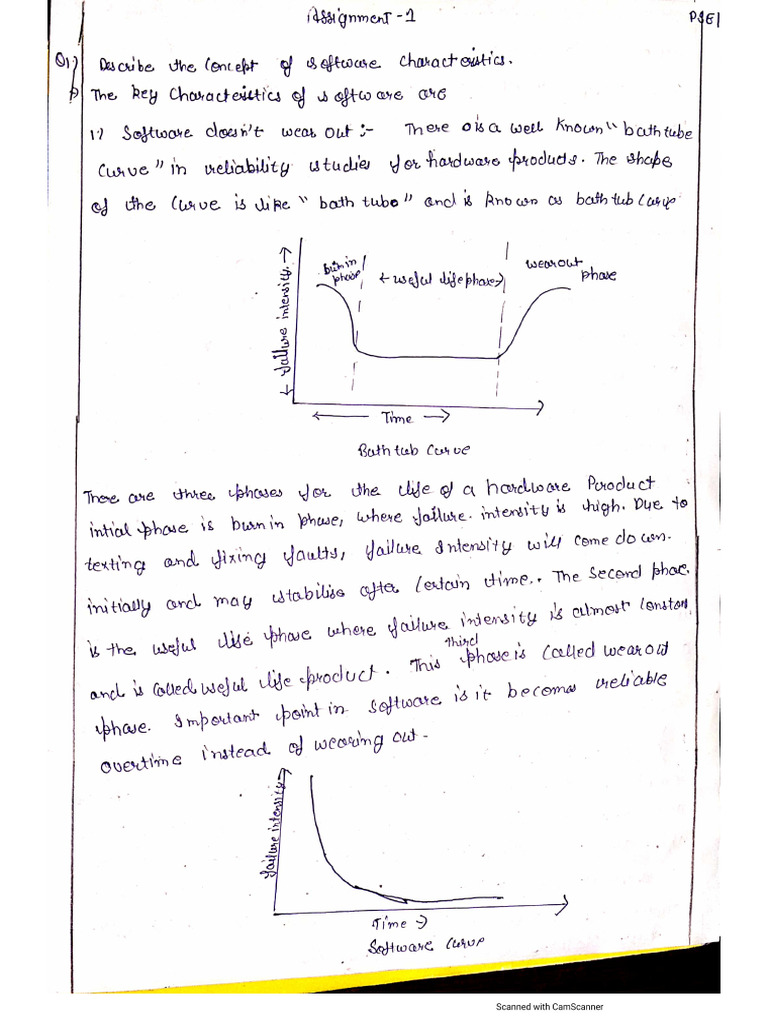 Assignment-1
PSE1
Q1) Describe the Concept of software characteristics.
The key characteristics of software are
1) Software doesn't wear out :- There is a well known "bath tube
Curve" in reliability studies for hardware products. The shape
of the curve is like "bath tube" and is known as bath tub curve
failure intensity.
burn in phase
useful life phase
wearout phase
Time
Bath tub Curve
There are three phases for the life of a hardware Product
intial phase is burn in phase, where failure intensity is high. Due to
texting and fixing faults, failure intensity will come down.
initially and may stabilise after certain time.. The second phac
is the useful life phase where failure intensity is almost constan
and is called useful life product. This third phase is called wearout
phase. Important point in software is it becomes reliable
overtime instead of wearing out.
failure intensity
Time
Software Curve
Scanned with CamScanner